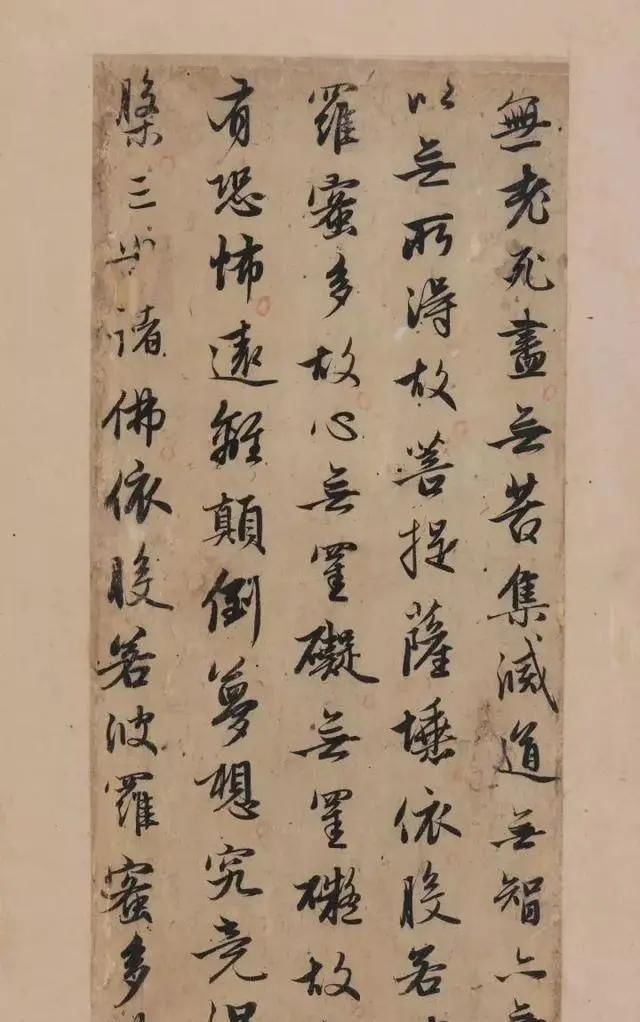 無老死盡無苦集滅道無智亦無
以無所得故菩提薩埵依般若
羅蜜多故心無罣礙無罣礙故
有恐怖遠離顛倒夢想究竟
槃三世諸佛依般若波羅蜜多